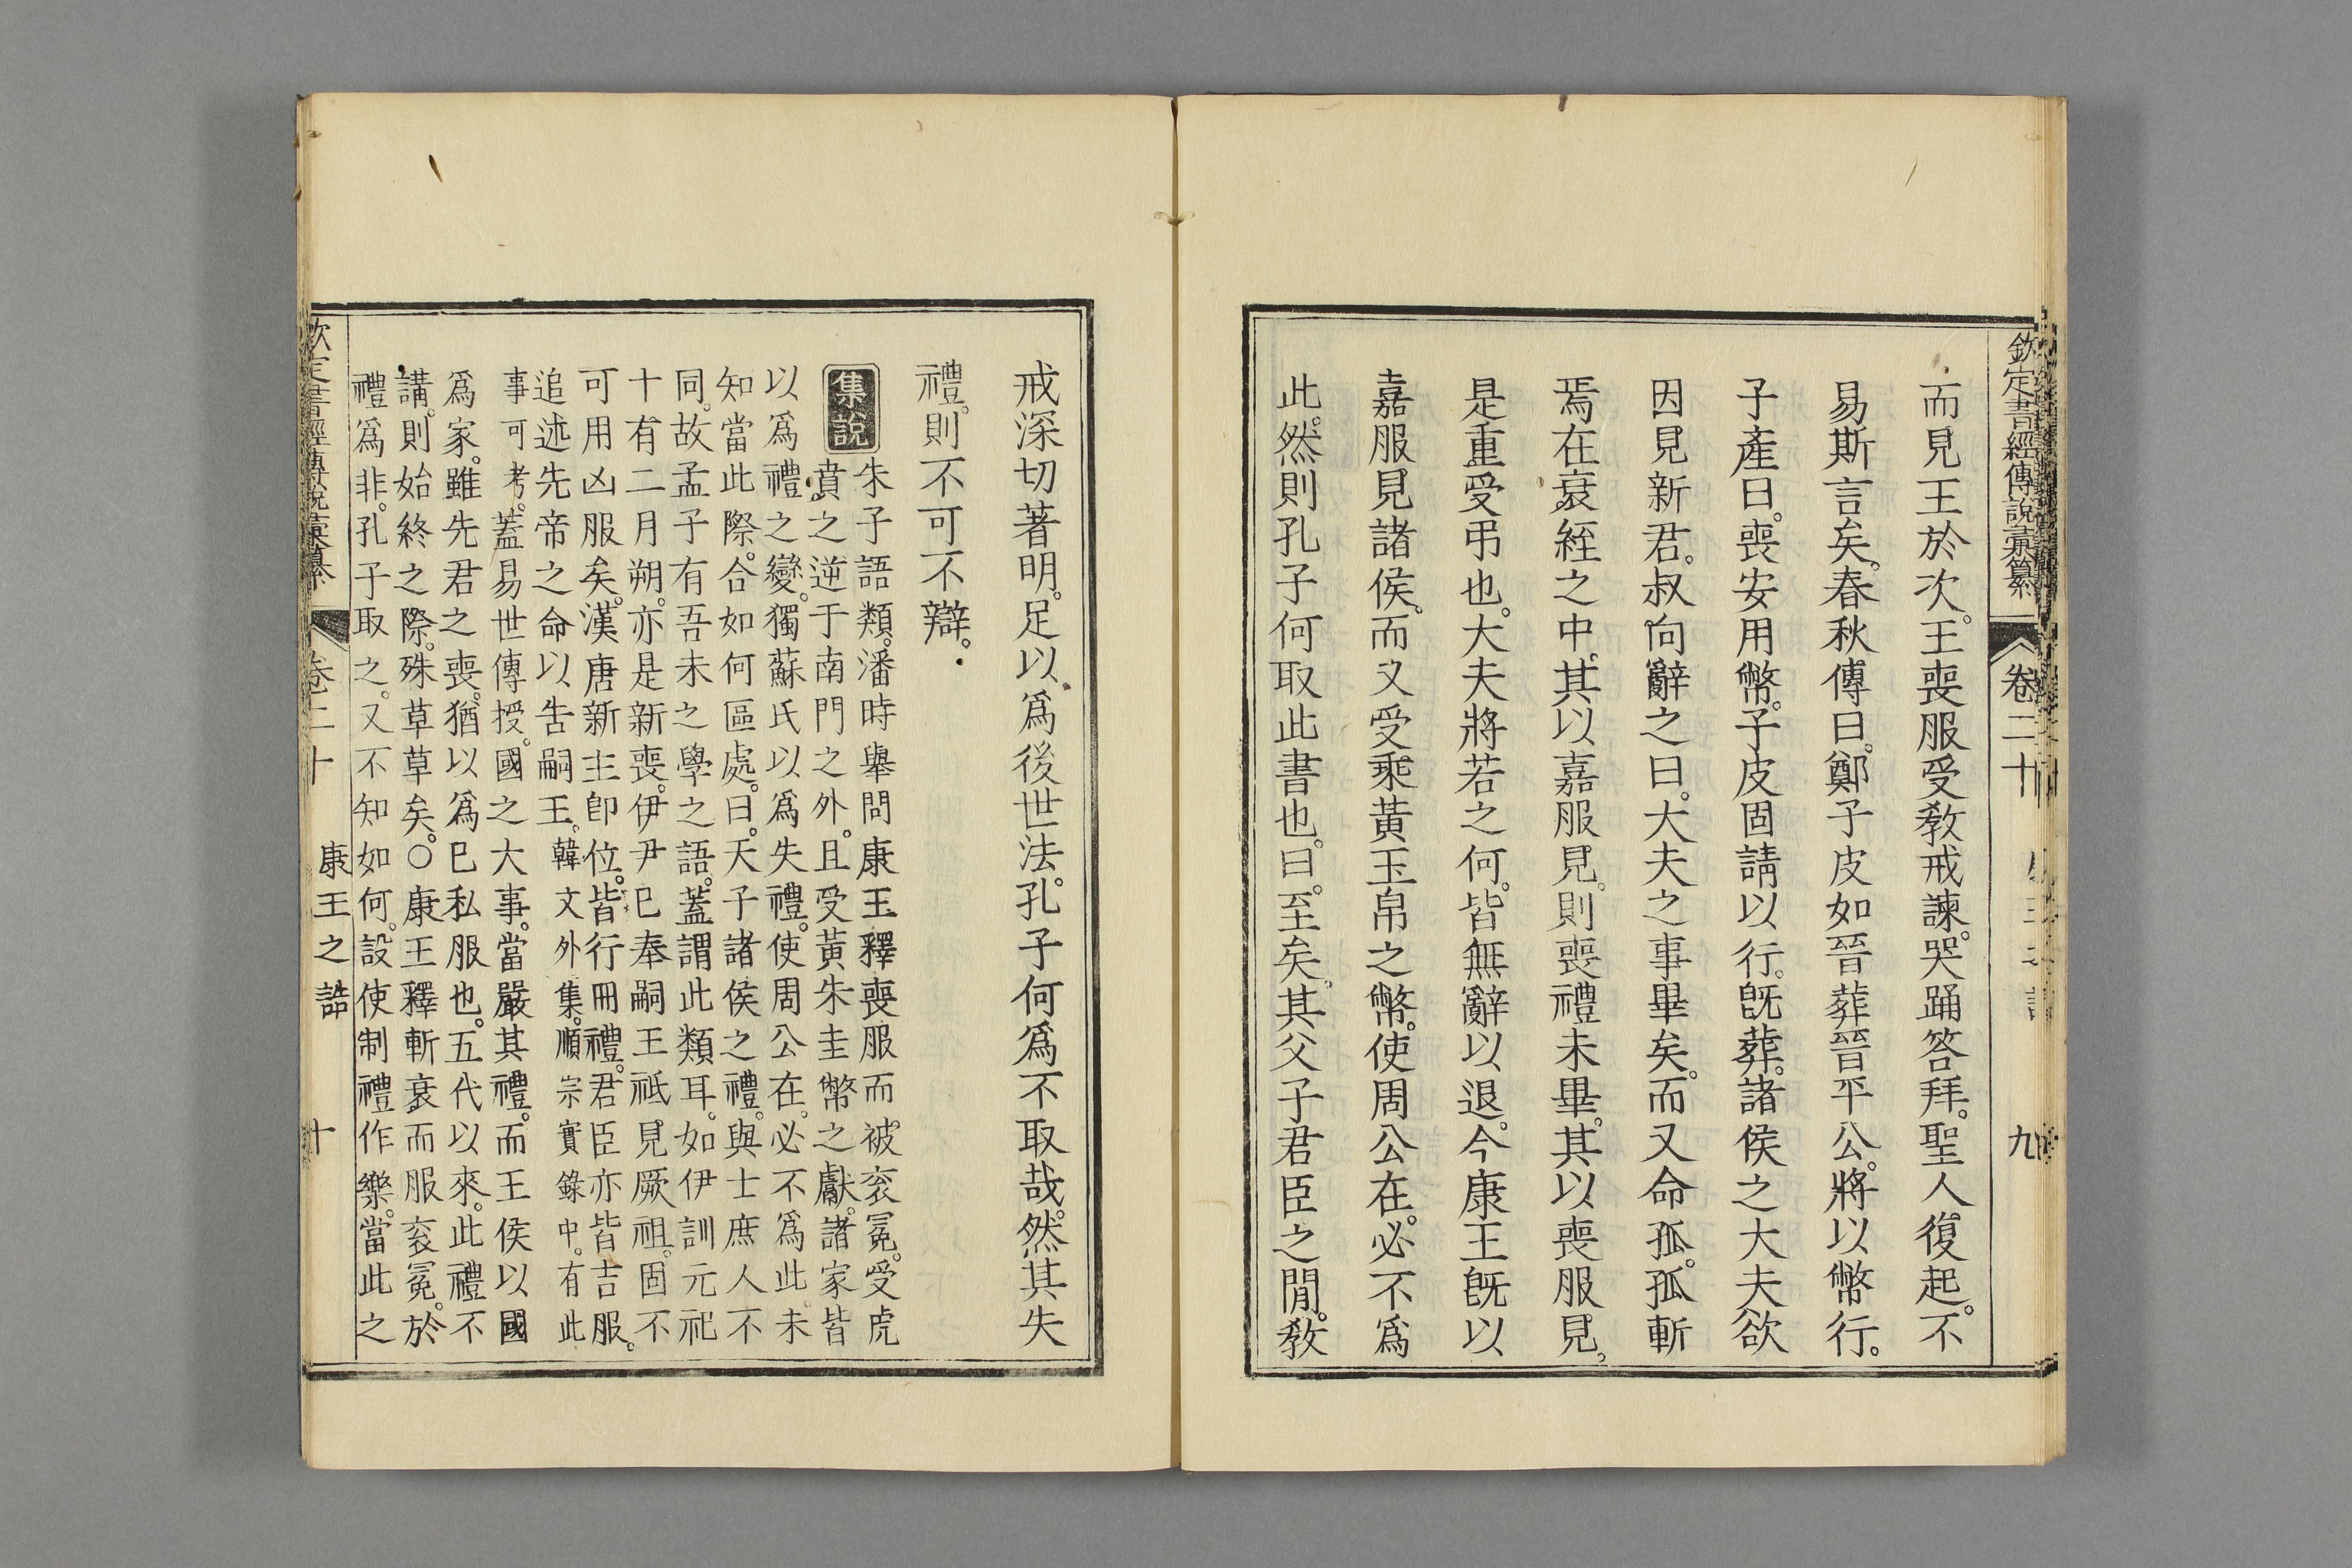 欽定書經傳說彙纂 卷二十 九
而見王於次。王喪服受教戒諫。哭踊答拜。聖人復起。不
易斯言矣。春秋傳曰。鄭子皮如晉葬晉平公。將以幣行。
子產曰。喪安用幣。子皮固請以行。旣葬。諸侯之大夫欲
因見新君。叔向辭之曰。大夫之事畢矣。而又命孤。孤斬
焉在衰絰之中。其以嘉服見。則喪禮未畢。其以喪服見。
是重受弔也。大夫將若之何。皆無辭以退。今康王旣以
嘉服見諸侯。而又受乘黃玉帛之幣。使周公在。必不爲
此。然則孔子何取此書也。曰。至矣。其父子君臣之閒。敎
戒深切著明。足以爲後世法。孔子何爲不取哉。然其失
禮。則不可不辯。
集說
朱子語類。潘時舉問康王釋喪服而被袞冕。受虎
賁之逆于南門之外。且受黃朱圭幣之獻。諸家皆
以爲禮之變。獨蘇氏以爲失禮。使周公在。必不爲此。未
知當此際。合如何區處。曰。天子諸侯之禮。與士庶人不
同。故孟子有吾未之學之語。蓋謂此類耳。如伊訓元祀
十有二月朔。亦是新喪。伊尹已奉嗣王祗見厥祖。固不
可用凶服矣。漢唐新主卽位。皆行冊禮。君臣亦皆吉服。
追述先帝之命以告嗣王。韓文外集。順宗實錄中。有此
事可考。蓋易世傳授。國之大事。當嚴其禮。而王侯以國
爲家。雖先君之喪。猶以爲已私服也。五代以來。此禮不
講。則始終之際。殊草草矣。○康王釋斬衰而服袞冕。於
禮爲非。孔子取之。又不知如何。設使制禮作樂。當此之
欽定書經傳說彙纂 卷二十 康王之誥 十